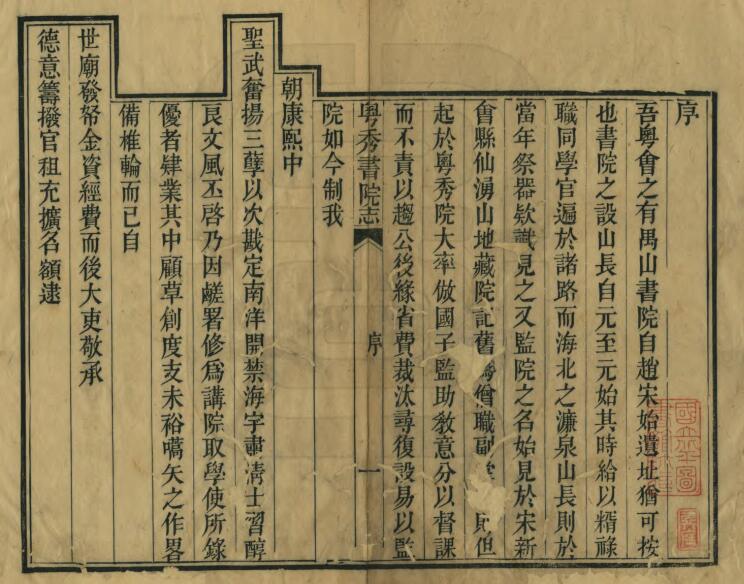 序
吾粤會之有禺山書院自趙宋始遺址猶可按
也書院之設山長自元至元始其時給以糈祿
職同學官遍於諸路而海北之濂泉山長則於
當年祭器欵識見之又監院之名始見於宋新
會縣仙湧山地藏院記舊爲僧職副則但
起於粤秀院大率倣國子監助敎意分以督課
而不責以趨公後緣省費裁汰尋復設易以監
粤秀書院志 序 一
院如今制我
朝康熙中
聖武奮揚三孽以次戡定南洋開禁海宇肅淸士習醇
良文風丕啓乃因鹺署修爲講院取學使所錄
優者肄業其中顧草創度支未裕嚆矢之作畧
備椎輪而已自
世廟發帑金資經費而後大吏敬承
德意籌撥官租充擴名額逮